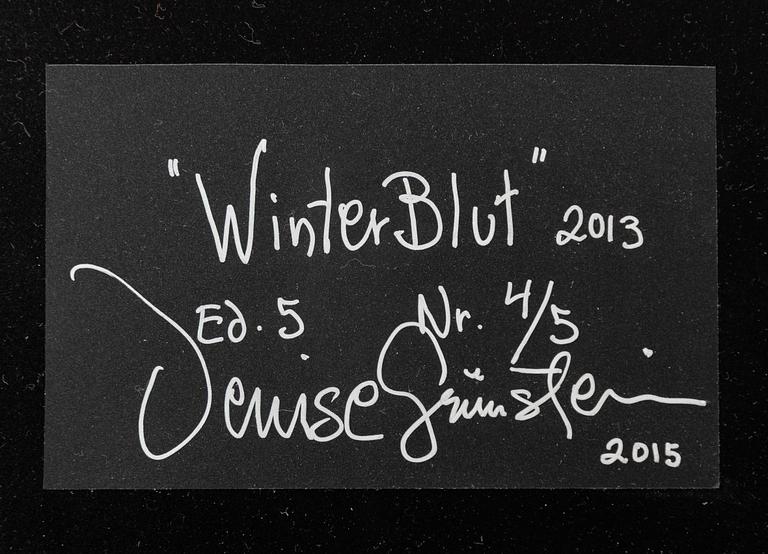 "WinterBlut" 2013
Ed. 5 Nr. 4/5
Denise Grünstein
2015